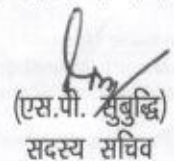 (एस.पी. सुबुद्धि)
सदस्य सचिव